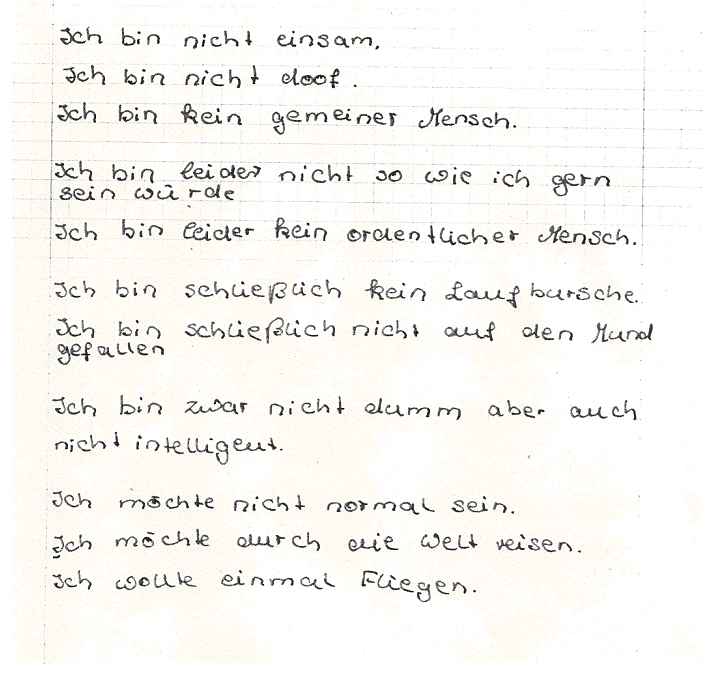 Ich bin nicht einsam.
Ich bin nicht doof.
Ich bin kein gemeiner Mensch.
Ich bin leider nicht so wie ich gern
sein würde
Ich bin leider kein ordentlicher Mensch.
Ich bin schließlich kein Laufbursche.
Ich bin schließlich nicht auf den Mund
gefallen
Ich bin zwar nicht dumm aber auch
nicht intelligent.
Ich möchte nicht normal sein.
Ich möchte durch die Welt reisen.
Ich wollte einmal Fliegen.